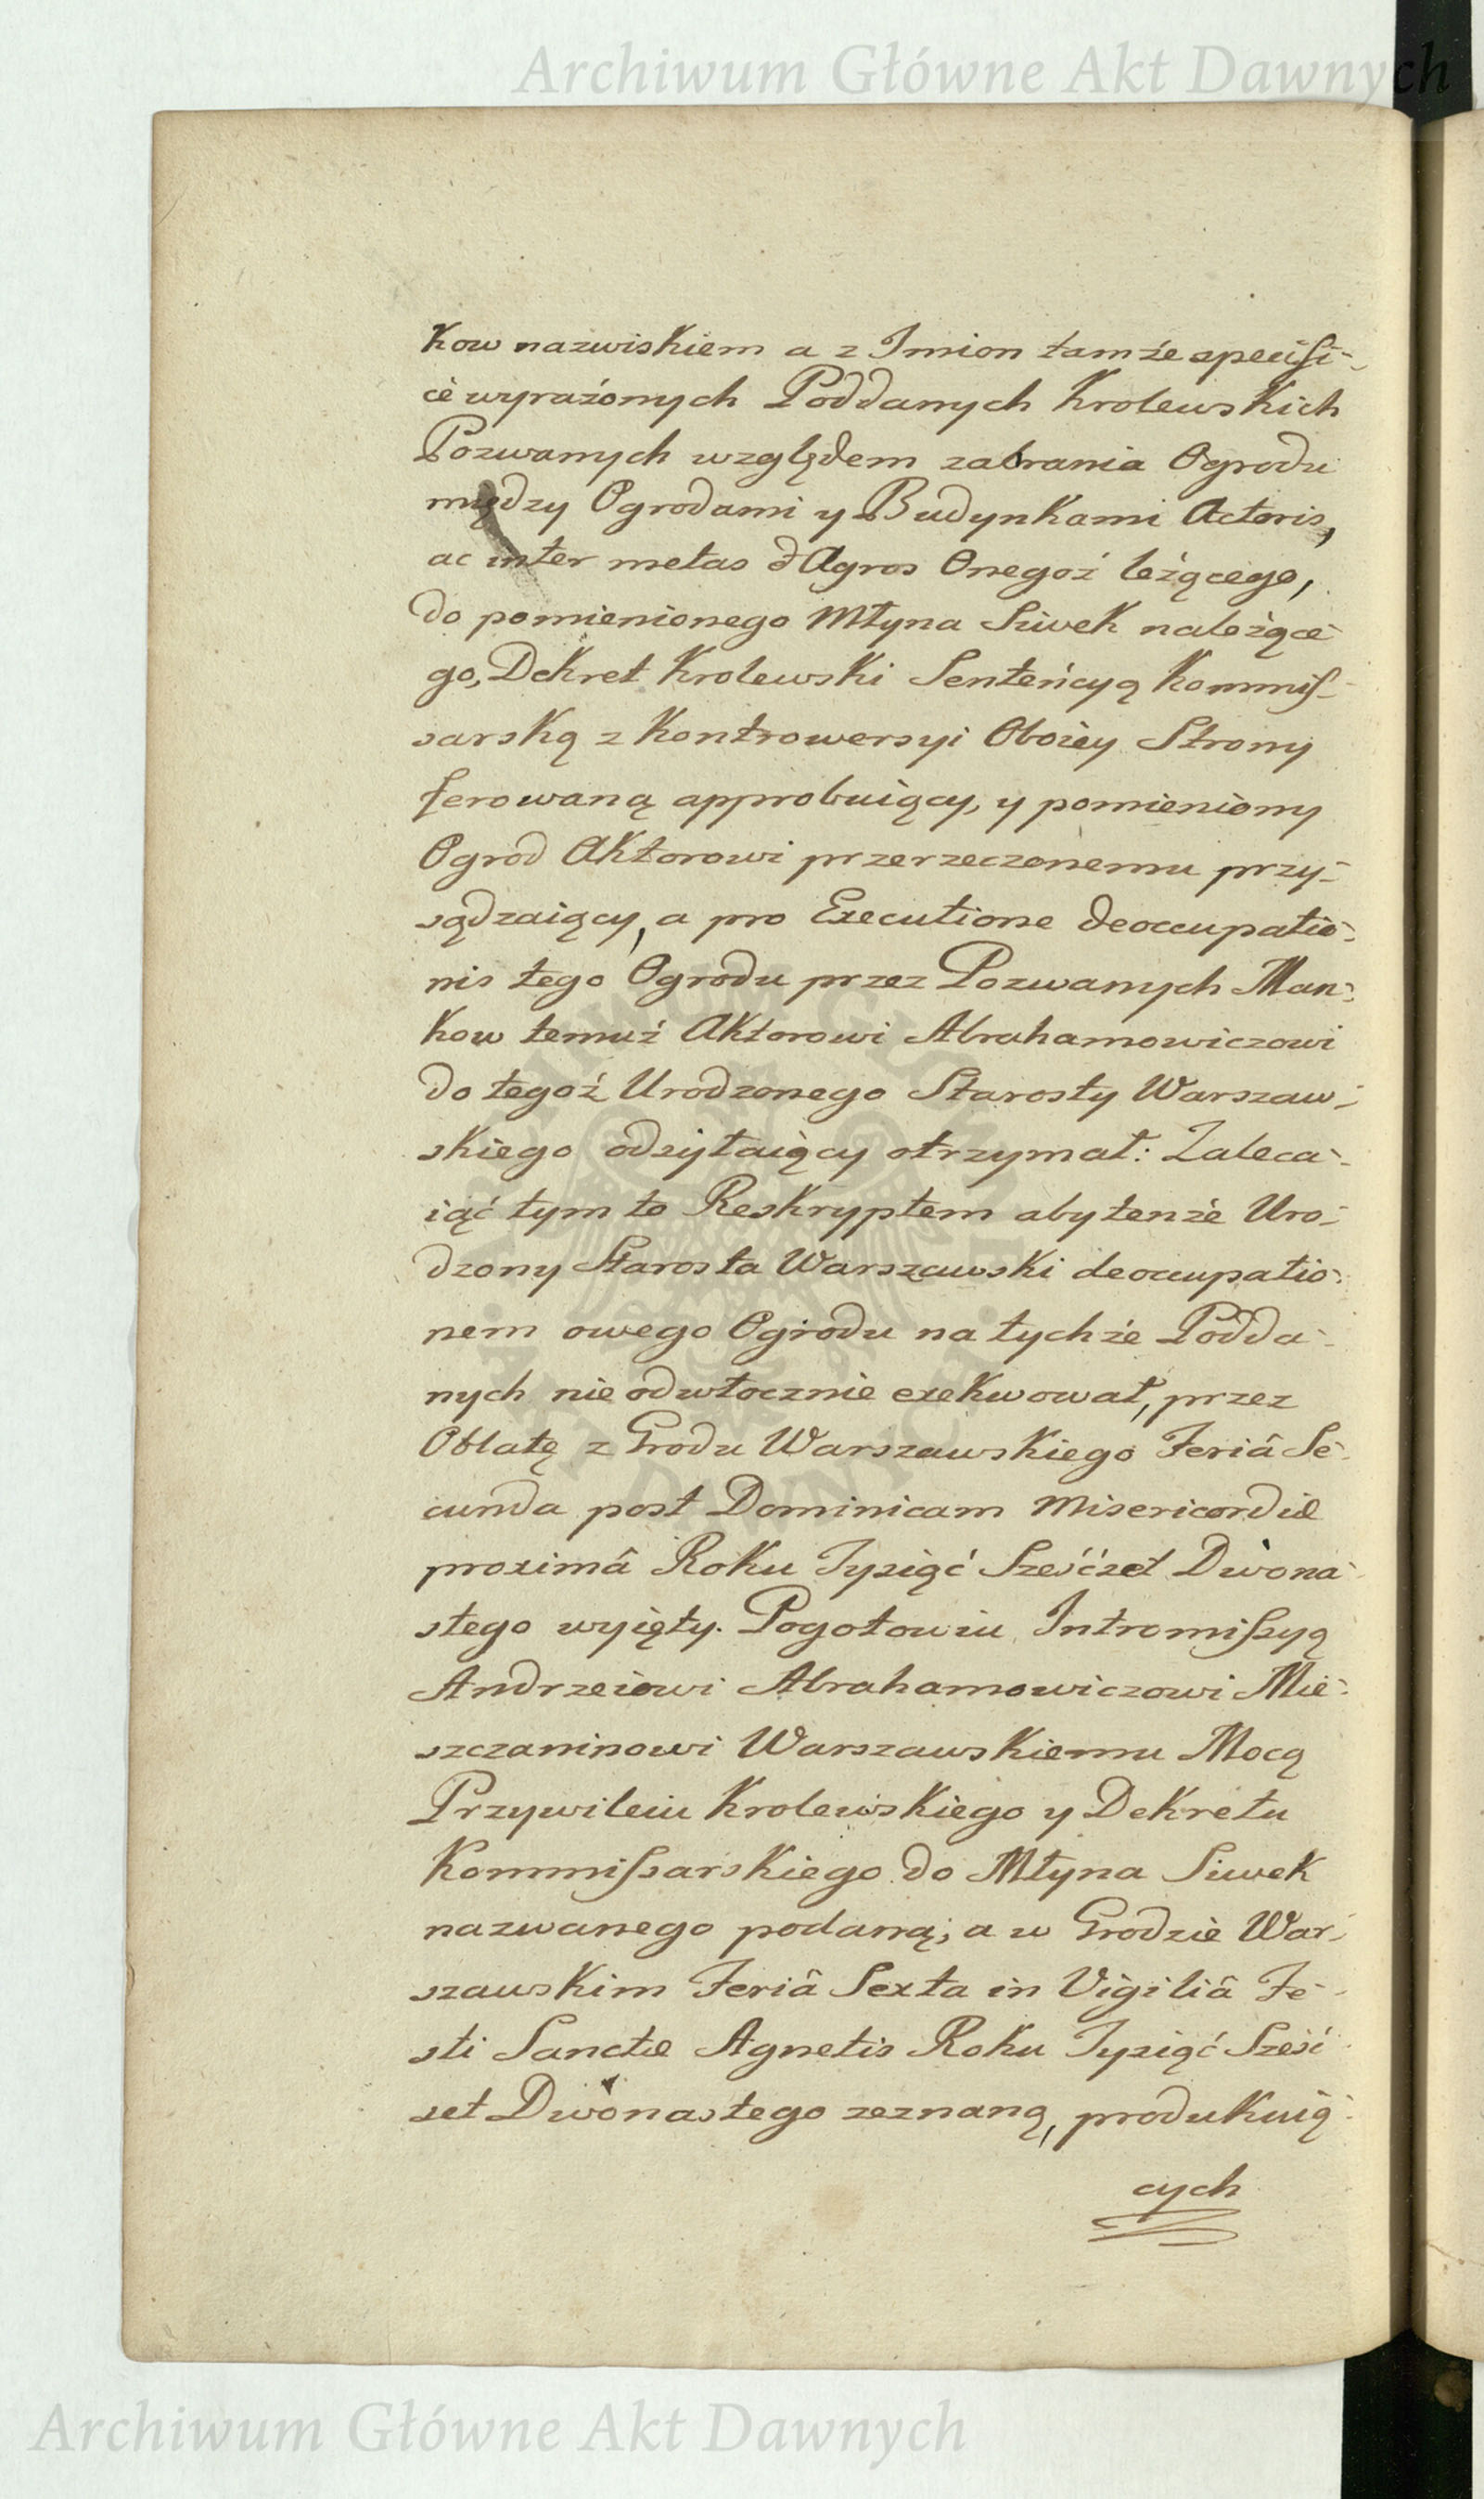 Archiwum Główne Akt Dawnych
Kow nazwiskiem a z Imion tamże specifi-
cè wyrażonych Poddanych Krolewskich
Pozwanych względem zabrania Ogrodu
między Ogrodami y Budynkami Actoris,
ac inter metas & Agros Onegoż leżącego,
do pomienionego Młyna Siwek należące-
go, Dekret Krolewski Senteńcyą Kommis-
sarską z Kontrowersyi Oboiey Strony
ferowaną approbuiący, y pomieniony
Ogrod Aktorowi przerzeczonemu przy-
sądzaiący, a pro Executione deoccupatio-
nis tego Ogrodu przez Pozwanych Man-
kow temuż Aktorowi Abrahamowiczowi
do tegoż Urodzonego Starosty Warszaw-
skiego odsyłaiący otrzymał: Zaleca-
iąć tym to Reskryptem aby tenże Uro-
dzony Starosta Warszawski deoccupatio-
nem owego Ogrodu na tychże Podda-
nych nie odwłocznie exekwował, przez
Oblatę z Grodu Warszawskiego Feriâ Se-
cunda post Dominicam Misericordiæ
proximâ Roku Tysiąć Sześćset Dwona-
stego wyięty. Pogotowiu Intromissyą
Andrzeiowi Abrahamowiczowi Mie-
szczaninowi Warszawskiemu Mocą
Przywileiu Krolewskiego y Dekretu
Kommissarskiego do Młyna Siwek
nazwanego podaną; a w Grodzie War-
szawskim Feriâ Sexta in Vigiliâ Fe-
sti Sanctæ Agnetis Roku Tysiąć Sześć
set Dwonastego zeznaną, produkuią-
cych
Archiwum Główne Akt Dawnych